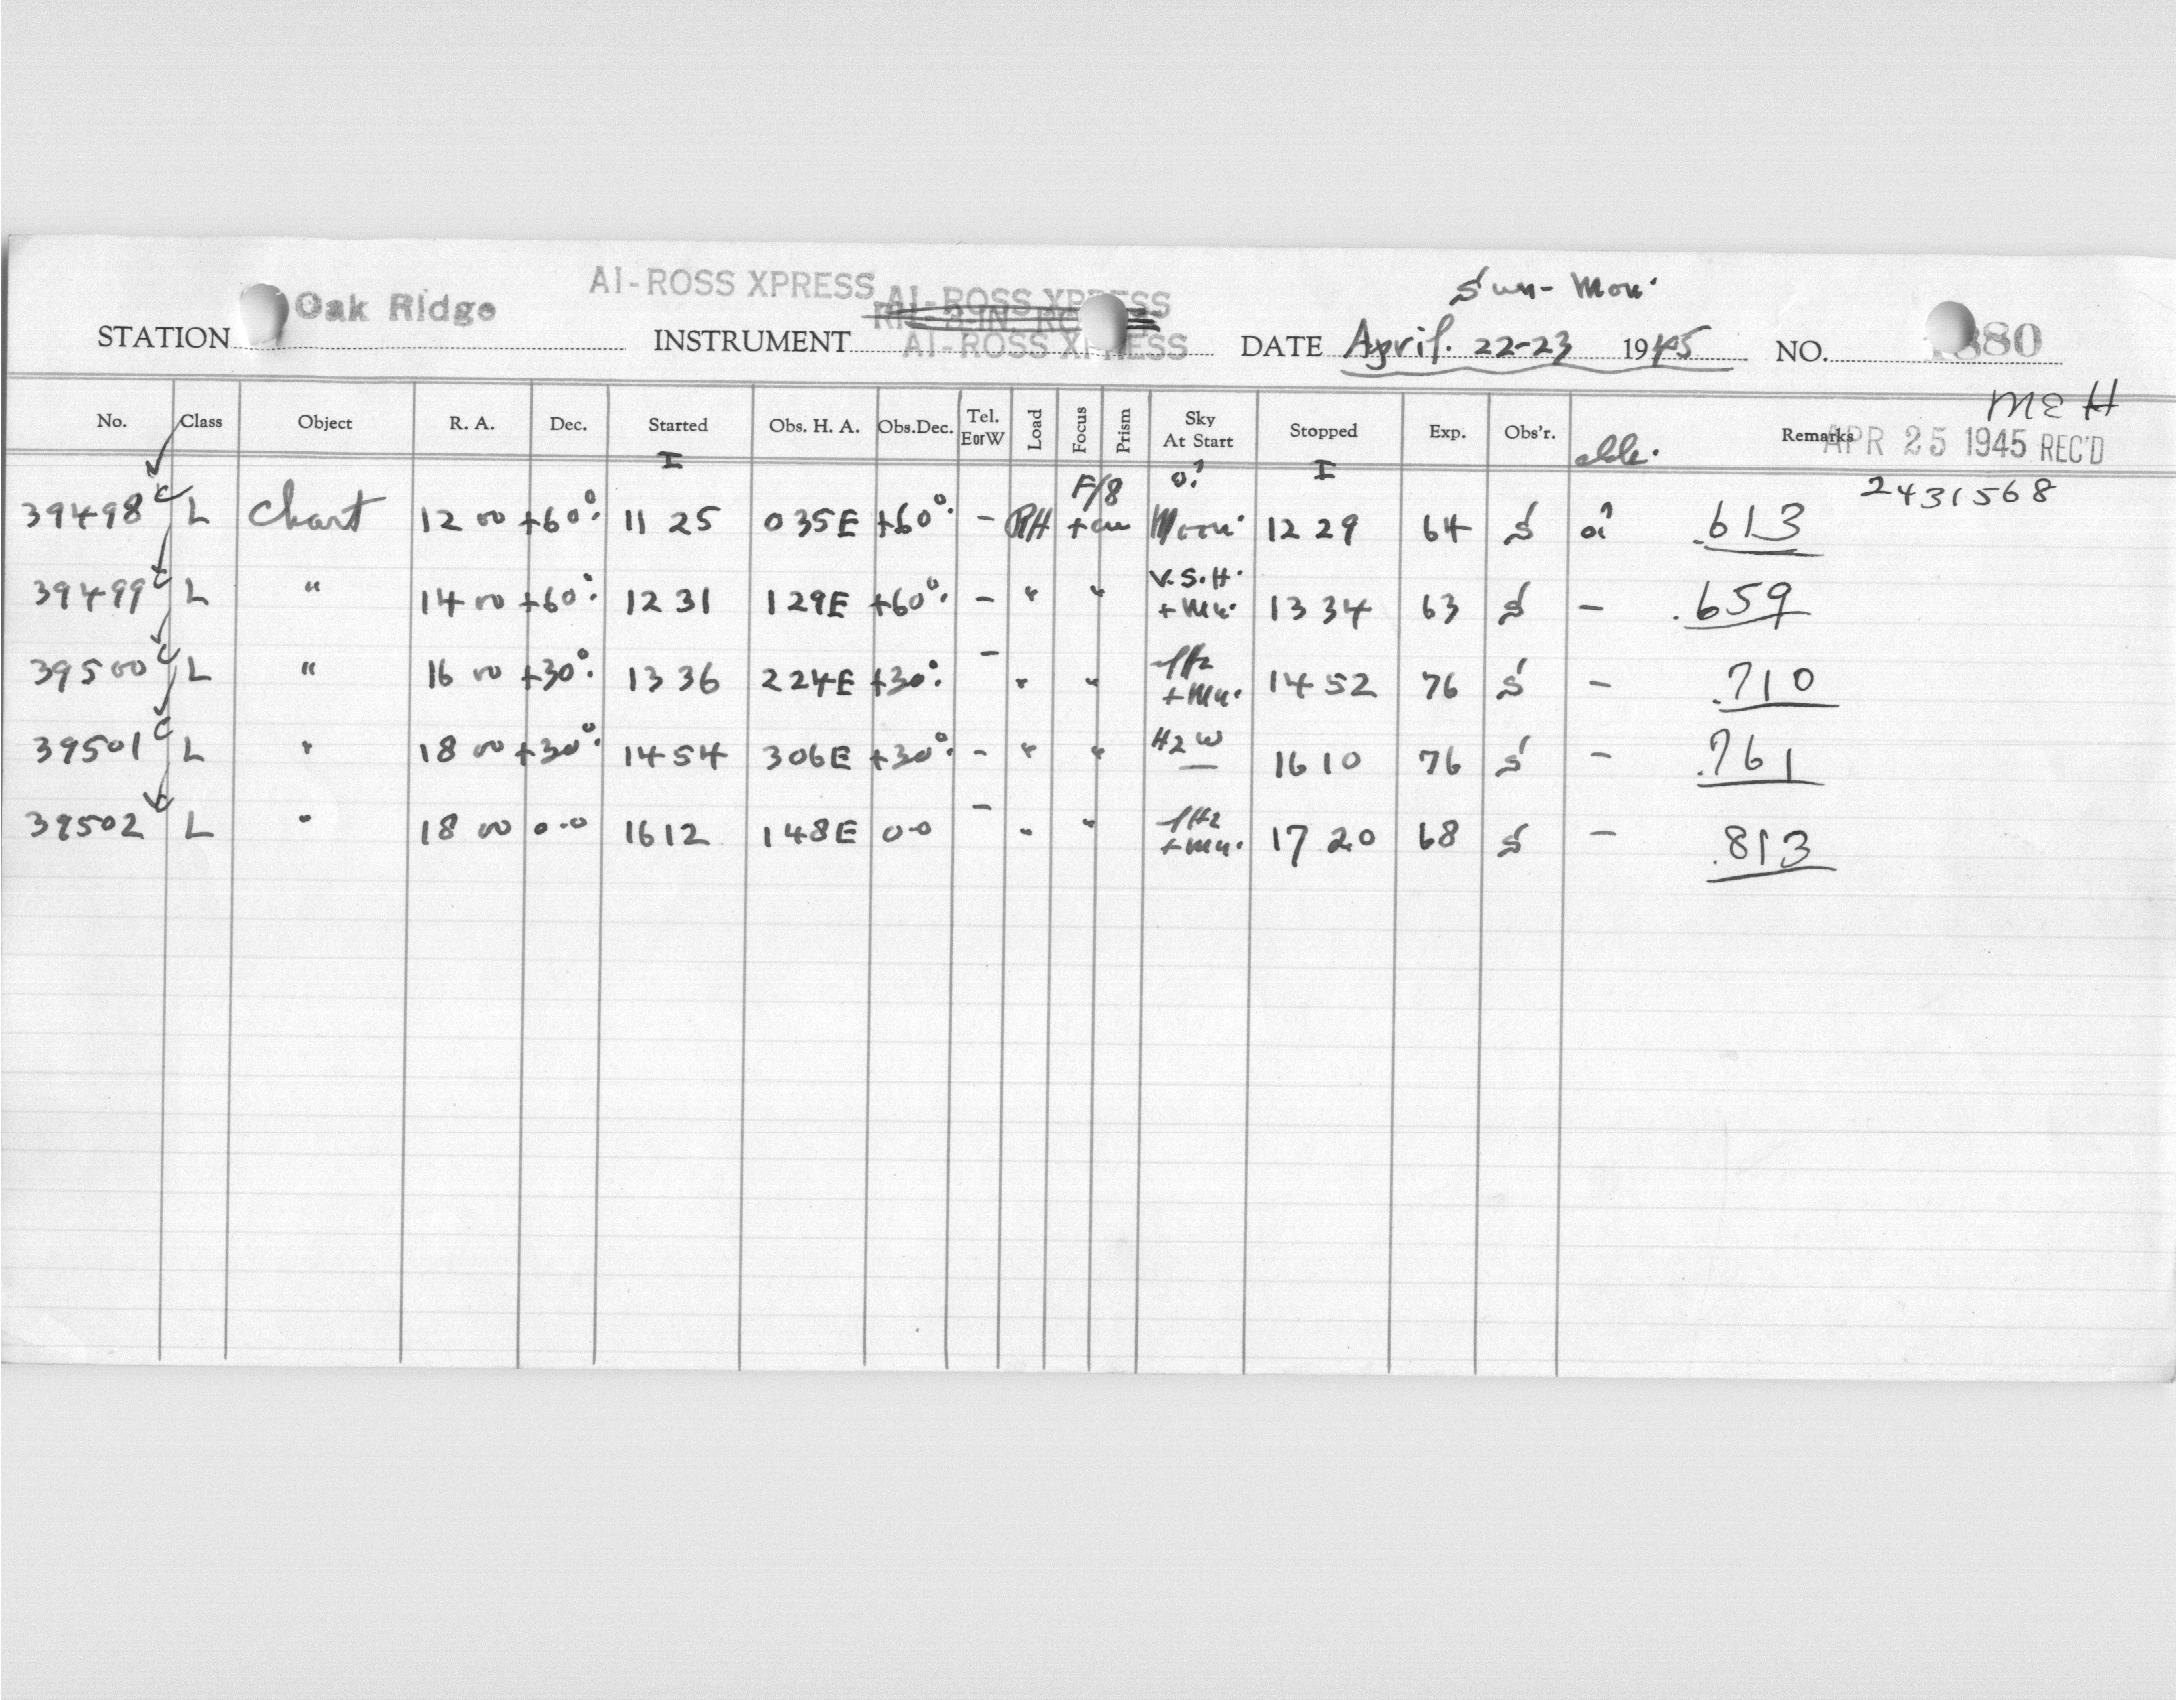 Sun- Mon.
AI-ROSS XPRESS
STATION Oak Ridge INSTRUMENT AI-ROSS XPRESS DATE April. 22-23 1945 NO. 880
AI-ROSS XPRESS
MEH
No. Class Object R. A. Dec. Started Obs. H. A. Obs.Dec. Tel. EorW Load Focus Prism Sky At Start Stopped Exp. Obs'r. Remarks
APR 25 1945 REC'D
I I
2431568
39498 c L Chart 12 00 +60°. 11 25 035E +60°. - RH F/8 Moon. 12 29 64 S .613
39499 c L " 14 00 +60°. 12 31 129E +60°. - " " V.S.H. + Mn. 13 34 63 S - .659
39500 c L " 16 00 +30°. 13 36 224E +30°. - " " + Mn. 14 52 76 S - .710
39501 c L " 18 00 +30°. 14 54 306E +30°. - " " Hz W 16 10 76 S - .761
39502 c L " 18 00 0-0 16 12 148E 0-0 - " " + Mn. 17 20 68 S - .813